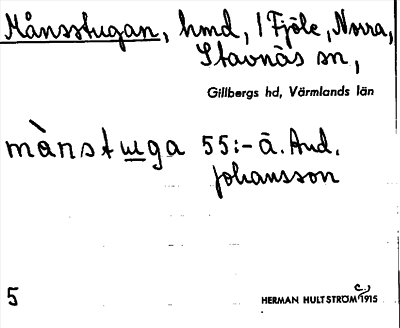 Månsstugan, hmd, i Fjöle, Norra,
Stavnäs sn,
Gillbergs hd, Värmlands län
mànstuga 55:- ä. And.
Johansson
5
HERMAN HULTSTRÖM C:) 1915